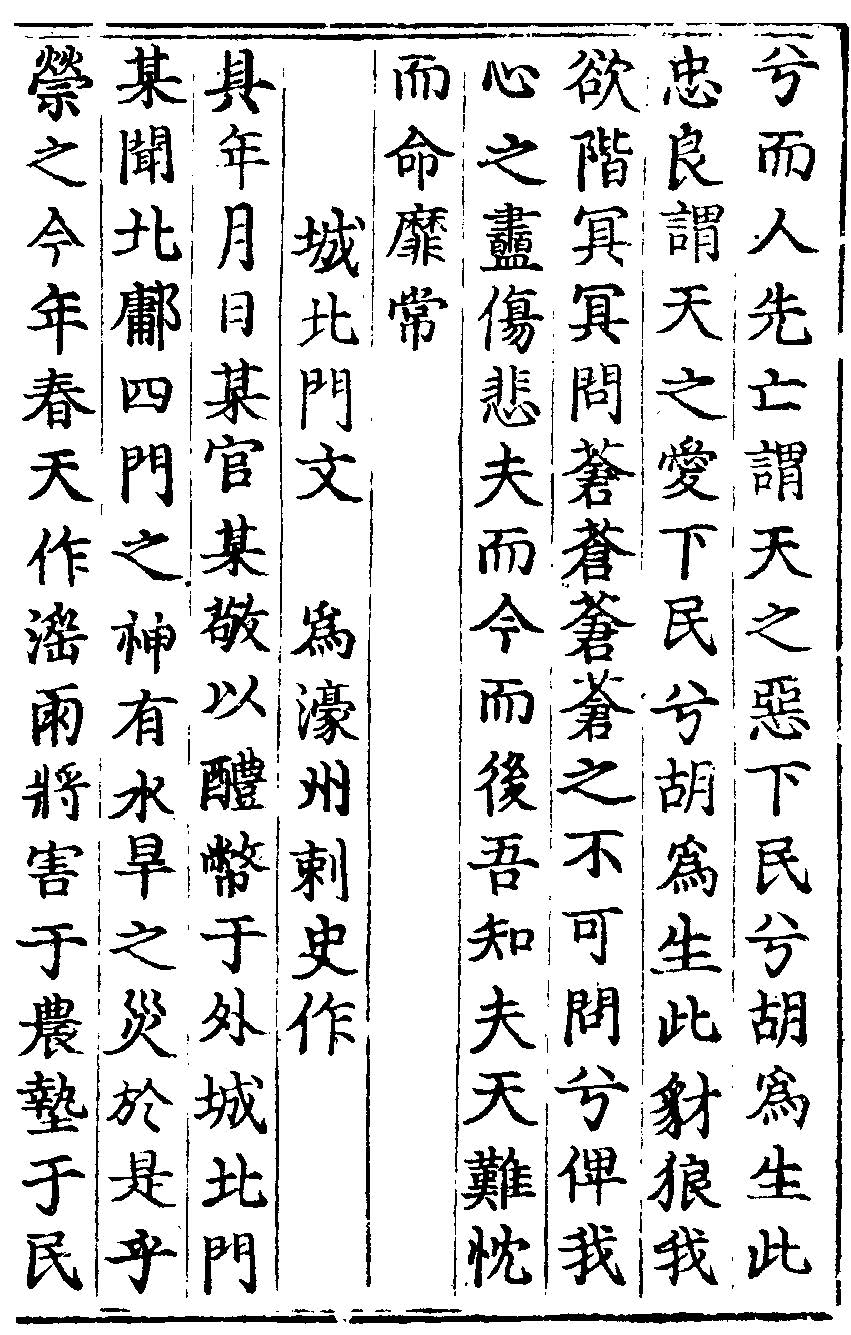 兮而人先亡謂天之惡下民兮胡爲生此
忠良謂天之愛下民兮胡爲生此豺狼我
欲階冥冥問蒼蒼蒼蒼之不可問兮俾我
心之衋傷悲夫而今而後吾知夫天難忱
而命靡常
城北門文　爲濠州刺史作
具年月日某官某敬以醴幣于外城北門
某聞北鄘四門之神有水旱之災於是乎
禜之今年春天作滛雨將害于農墊于民